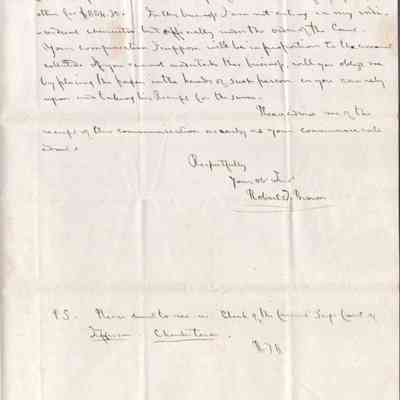 other for $804.30. In this business I am not acting in my indi-
vidual character but officially under the order of the Court.
Your compensation I suppose will be in proportion to the amount
collected. If you cannot undertake this business, will you oblige me
by placing the papers in the hands of such person as you can rely
upon and taking his receipt for the same.
Please advise me of the
receipt of this communication as early as your convenience will
admit.
Respectfully
Your Obt Servt
Robert T. Brown
P.S. Please direct to me as Clerk of the Court of
Jefferson
R. T. B.